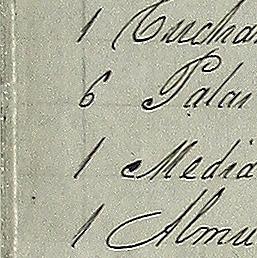 1 Cuchar
6 Palan
1 Media
1 Almu